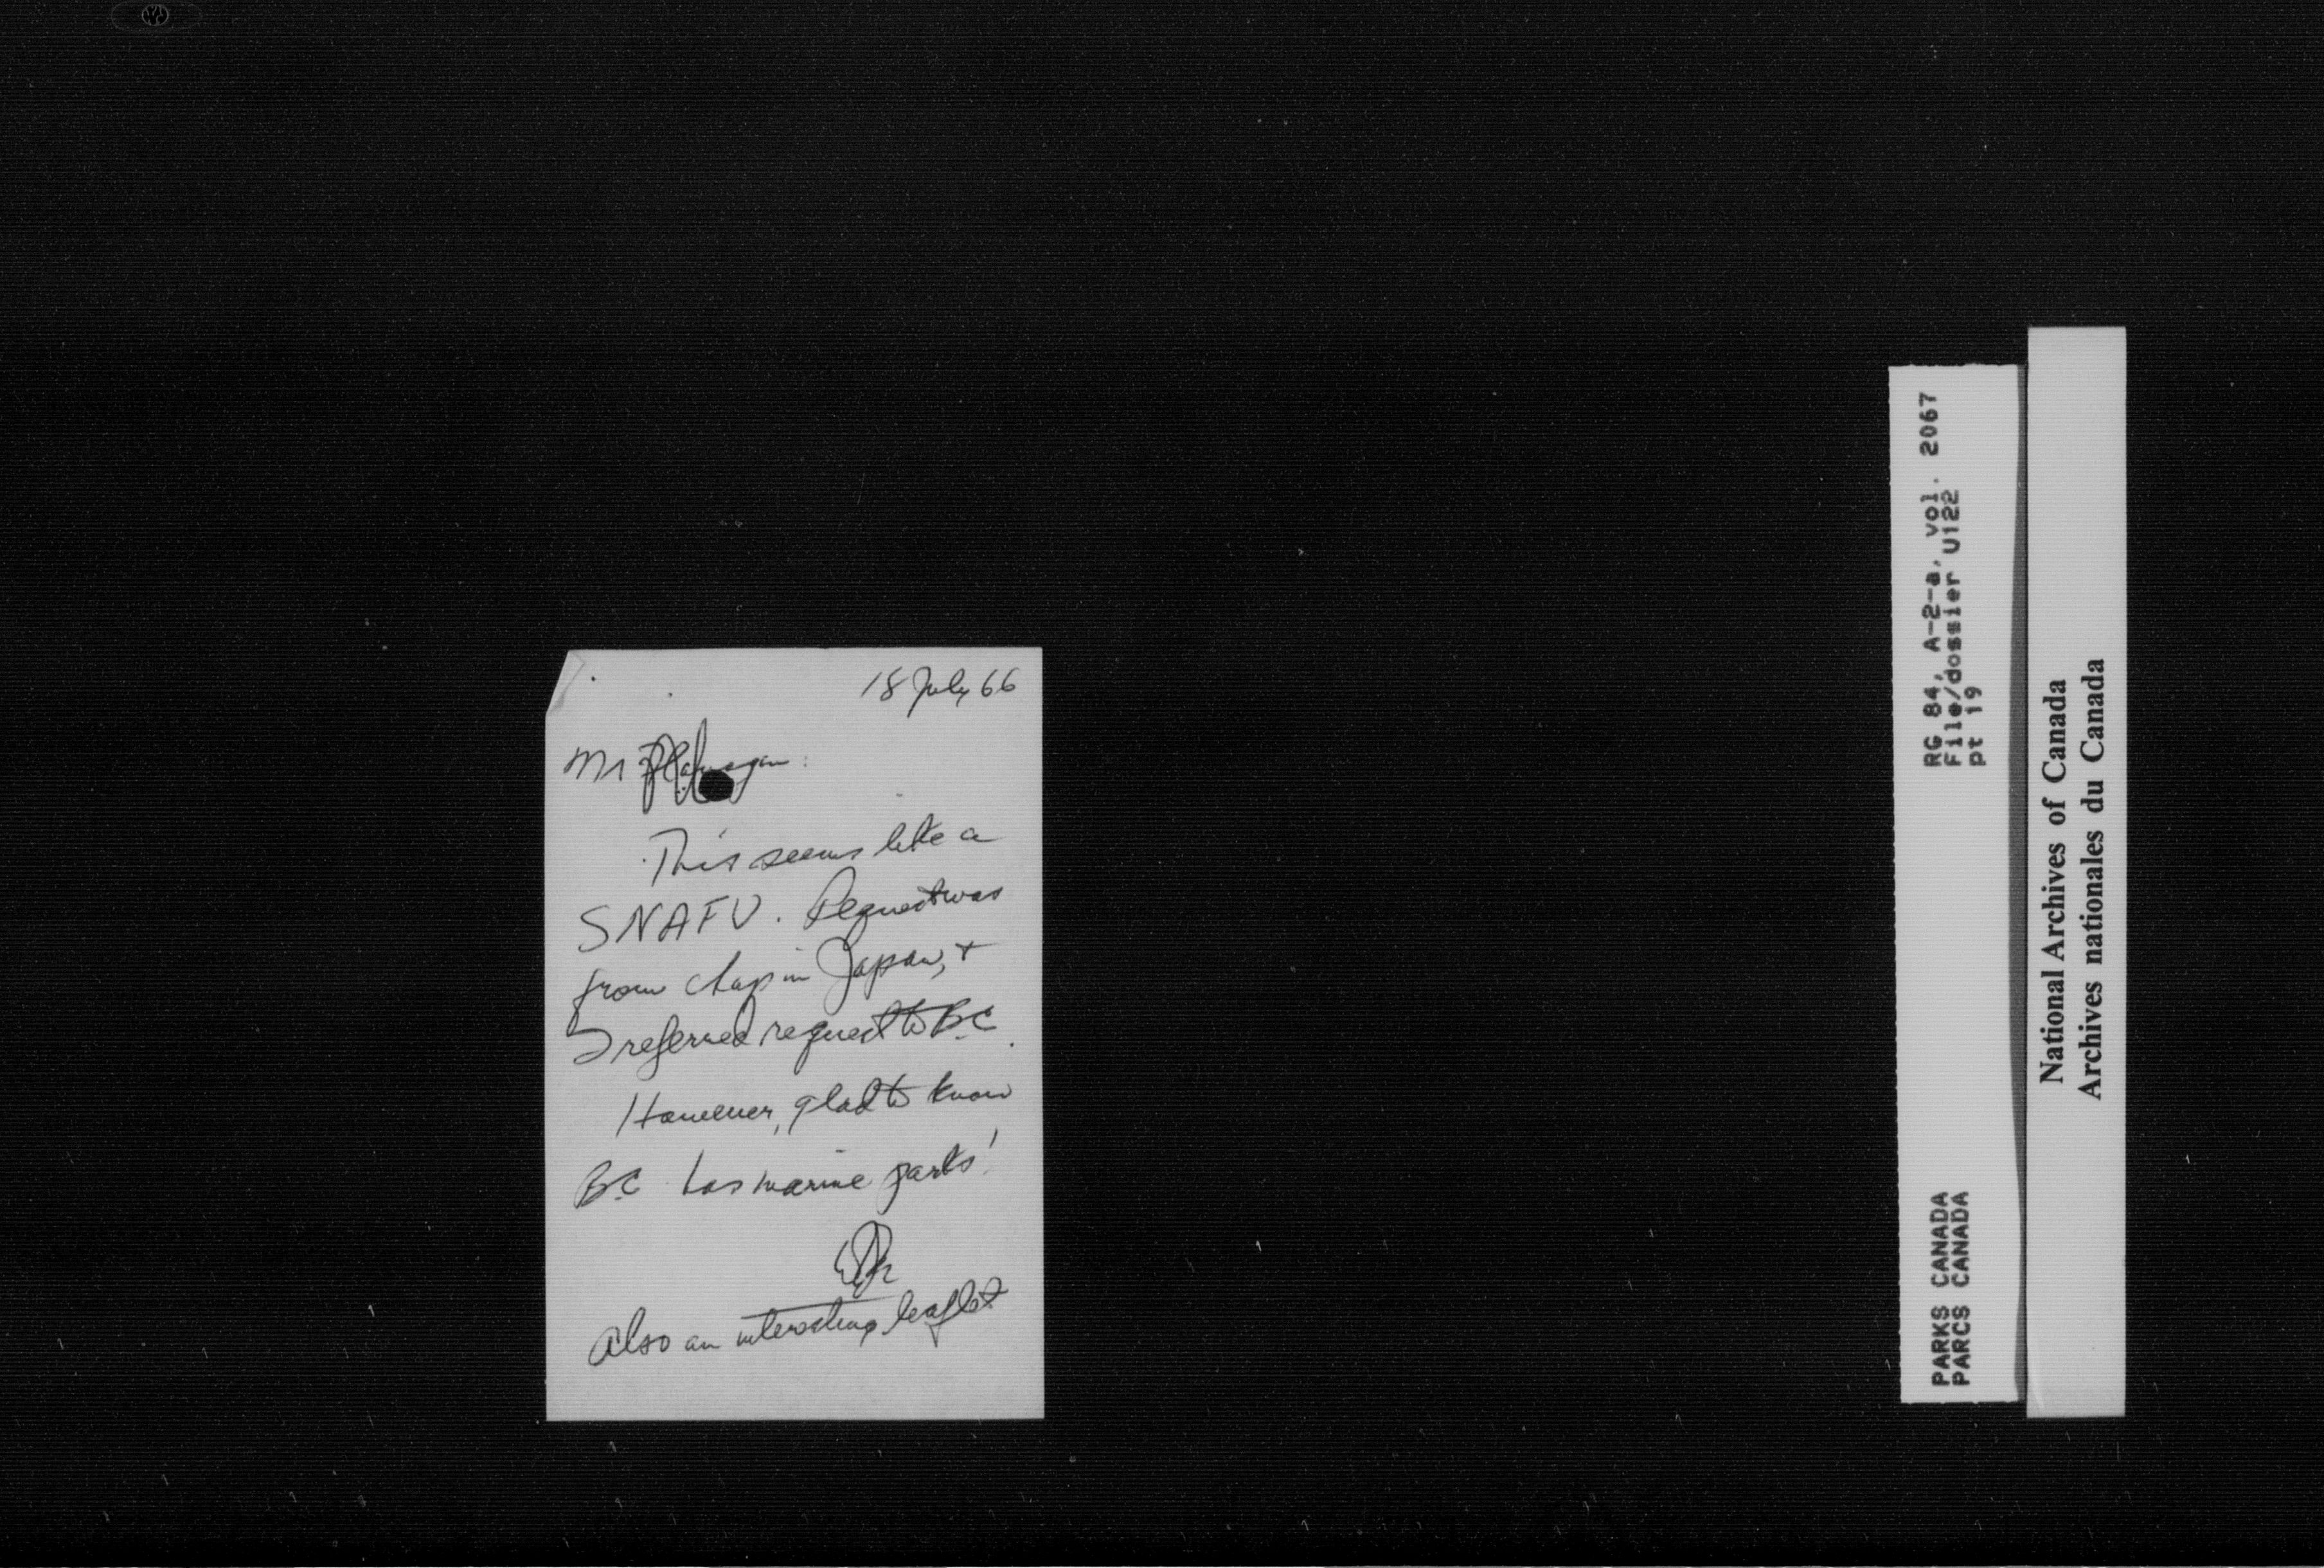 18 July 66
Mr Flahnagan:
This seems like a
SNAFU. Request was
from chap in Japan, +
I referred request to B.C.
However, glad to know
B.C. has marine parks!
Also an interesting leaflet
RG 84, A-2-a, vol. 2067
File/dossier U122
pt 19
PARKS CANADA
PARCS CANADA
National Archives of Canada
Archives nationales du Canada